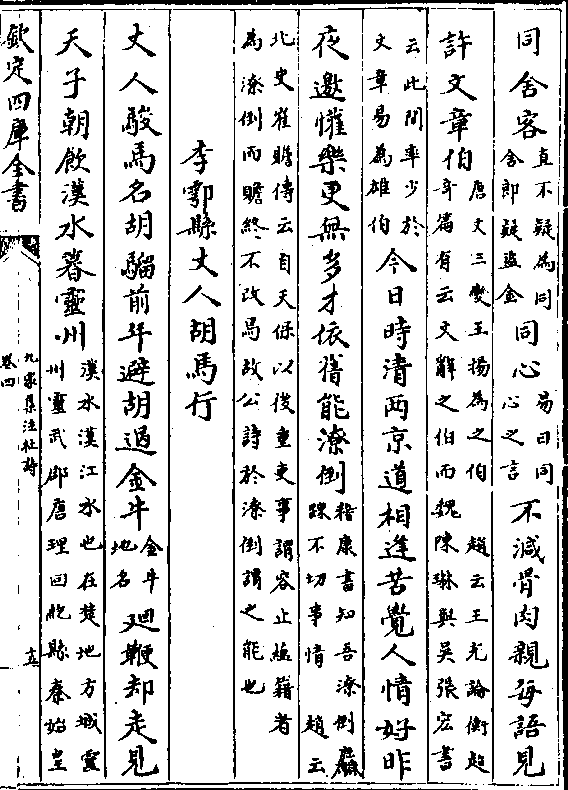 同舍客直不疑為同舍郎疑盜金同心易曰同心之言不減骨肉親每語見
許文章伯唐文三變王楊為之伯 趙云王充論衡超奇篇有云文辭之伯而魏陳琳與吳張宏書
云此間率少於文章易為雄伯今日時清兩京道相逢苦覺人情好昨
夜邀懽樂更無多才依舊能潦倒嵇康書知吾潦倒麤踈不切事情 趙云
北史崔瞻傳云自天保以後重吏事謂容止蘊籍者為潦倒而瞻終不改焉故公詩於潦倒謂之能也
李鄠縣丈人胡馬行
丈人駿馬名胡騮前年避胡過金牛金牛地名廻鞭却走見
天子朝飲漢水暮靈州漢水漢江水也在楚地方城靈州靈武郡唐理回紇縣秦始皇
欽定四庫全書
九家集注杜詩
卷四
十五